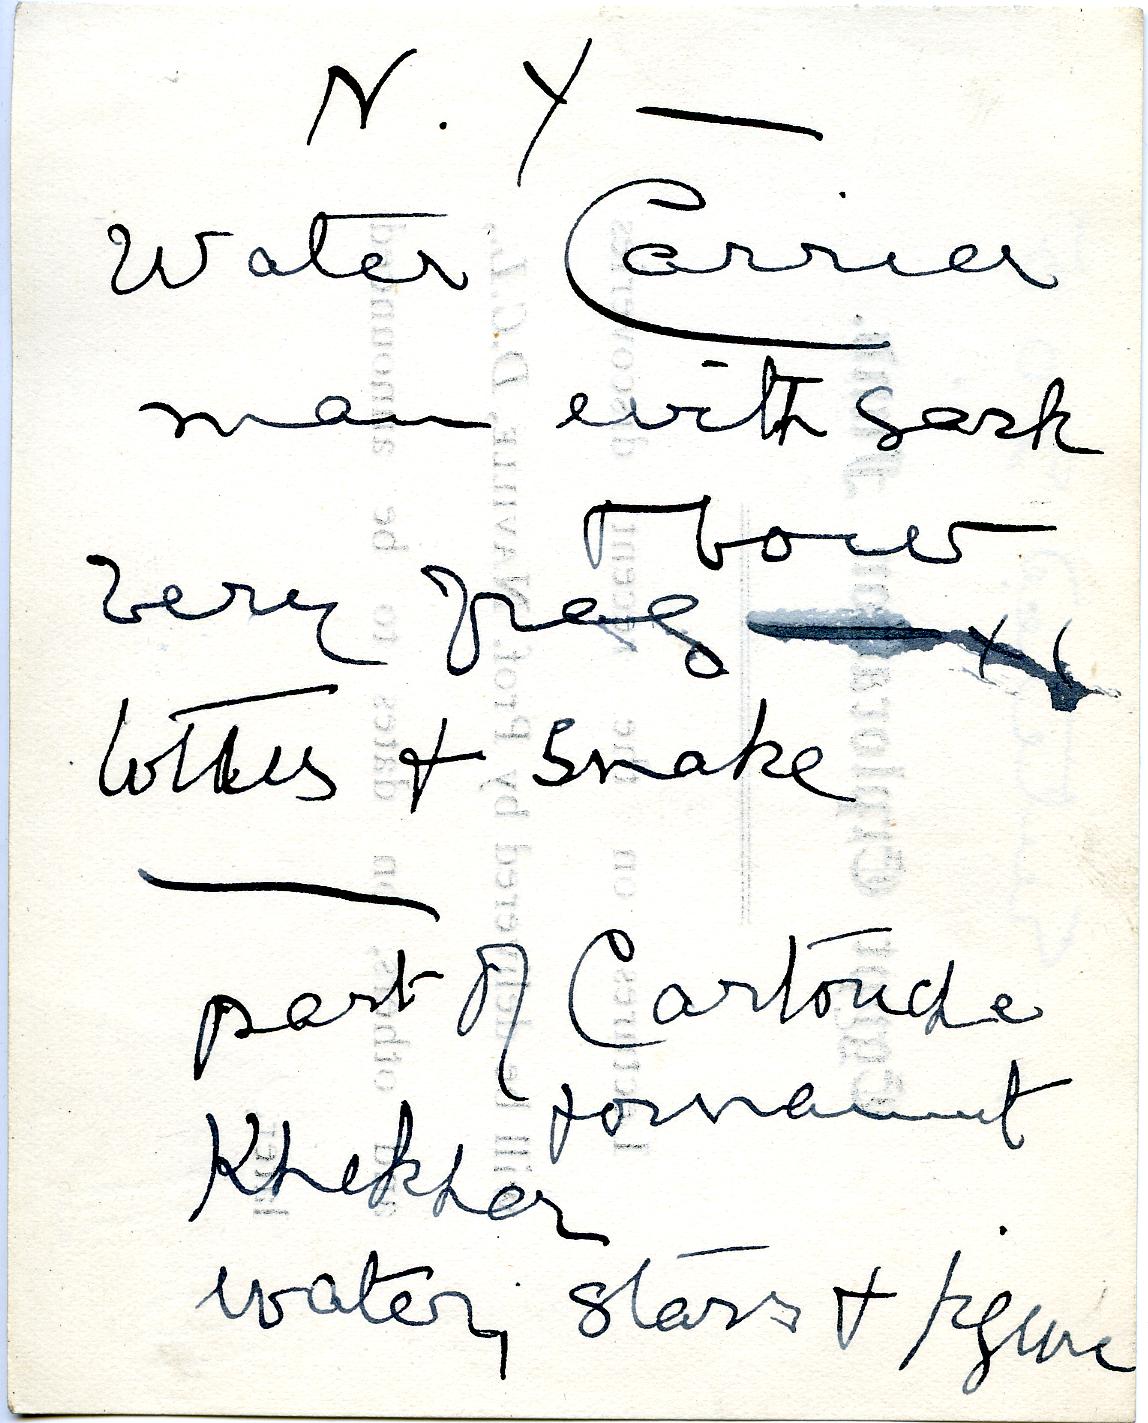 N. Y —
Water Carrier
man with sack
+ bow
very frag
lottus + snake
part of Cartouche
+ ornament
Khekher
water, stars + figure